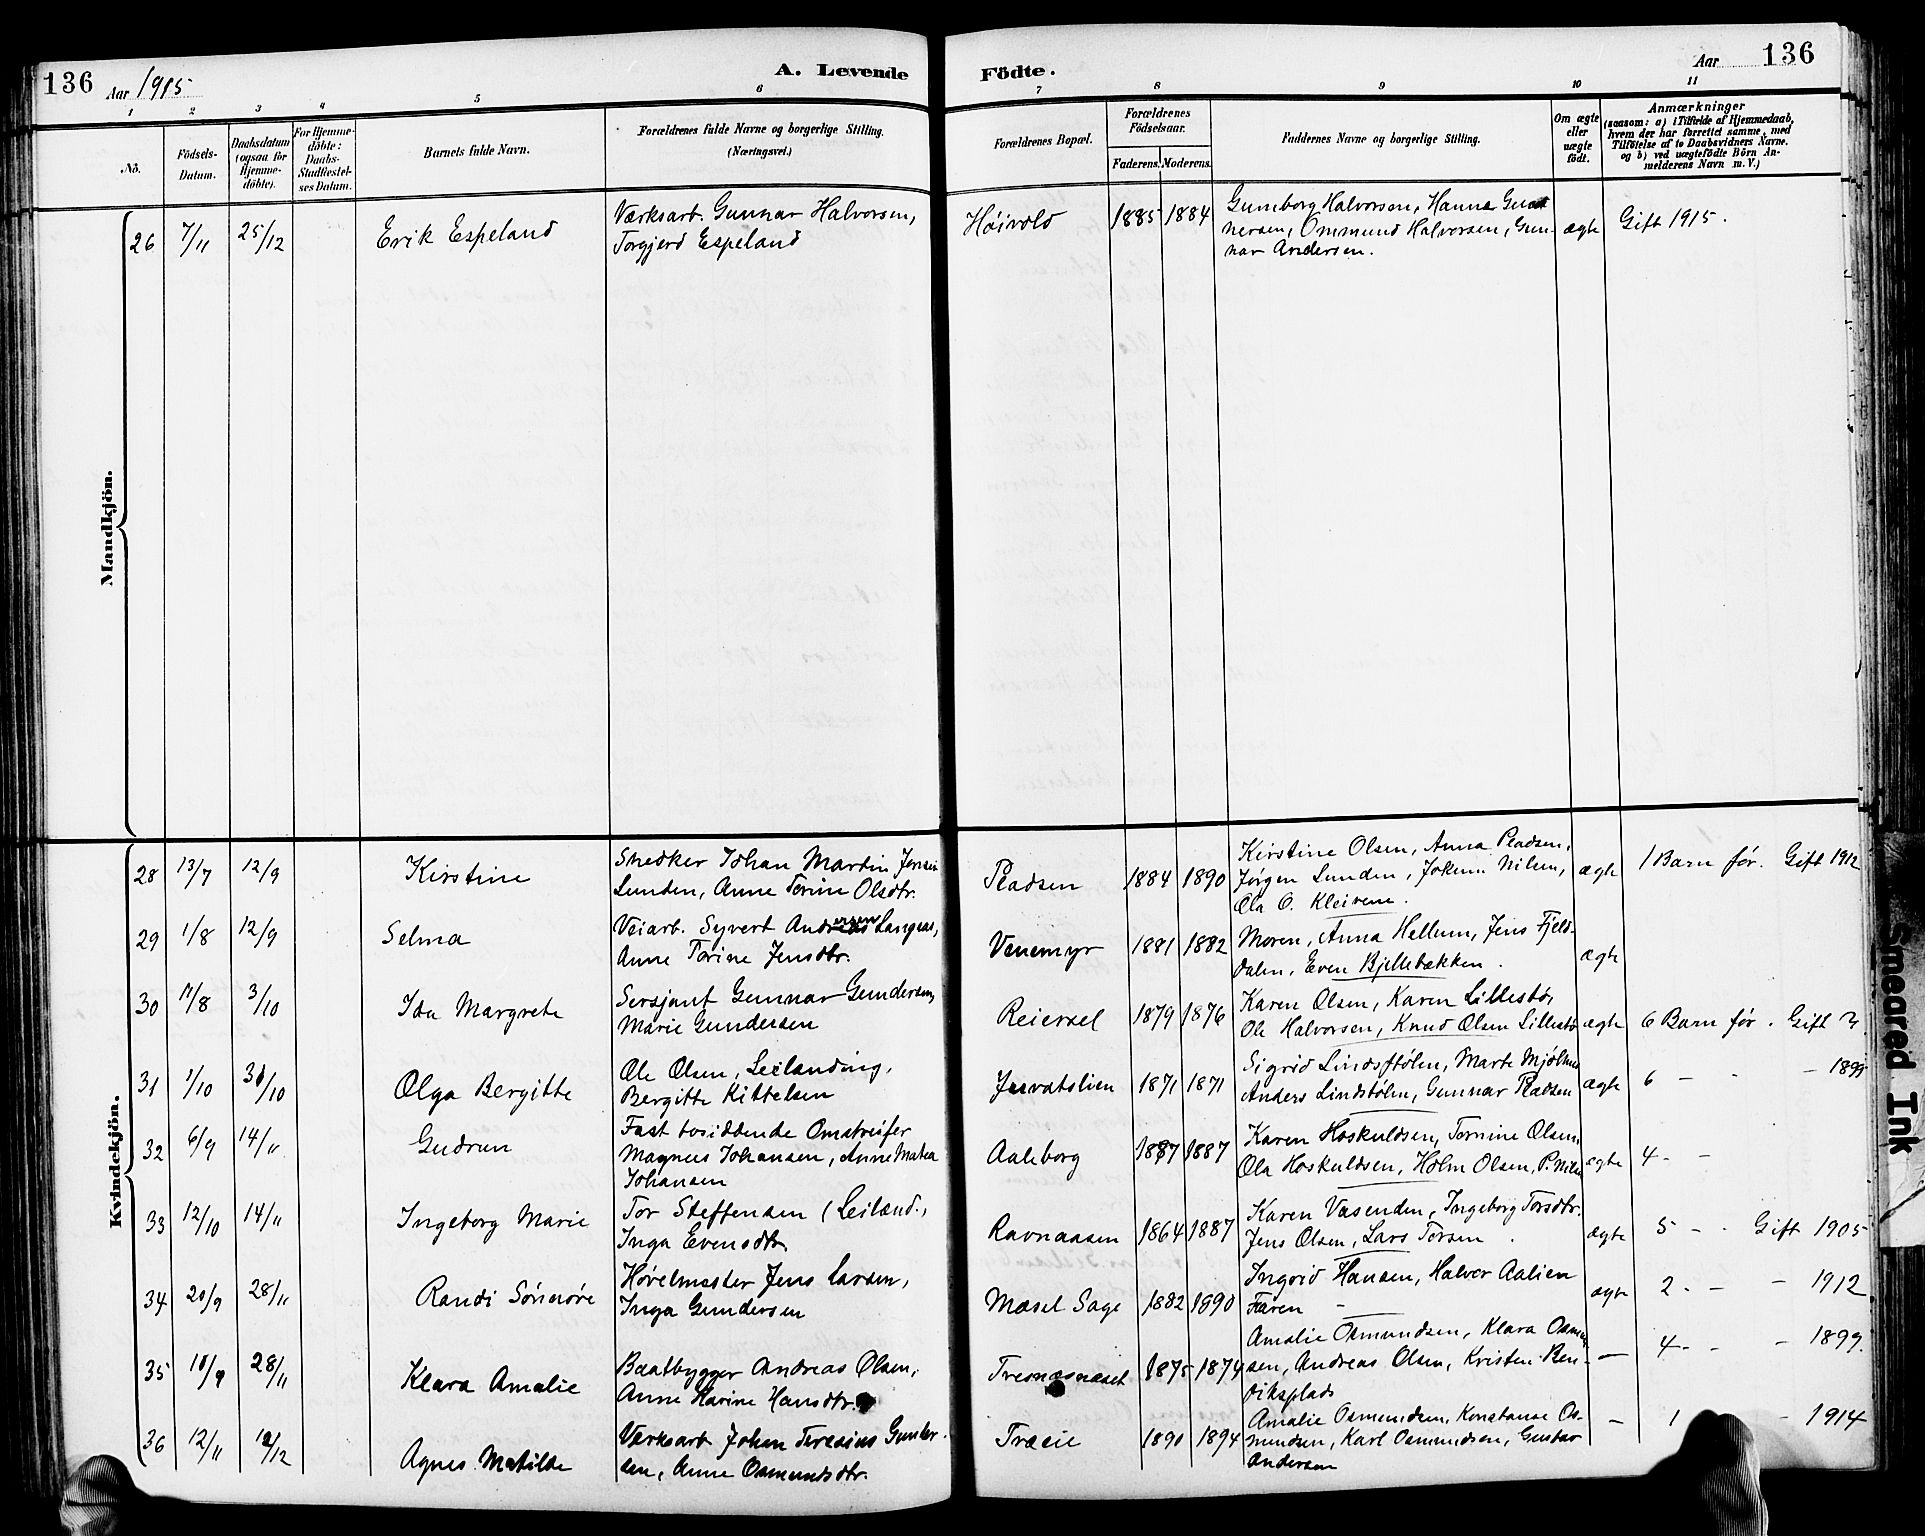 136 Aar 1915 A. Levende Födte. Aar 136
1 2 3 4 5 6 7 8 9 10 11
No.
Födsels-
Datum.
Daabsdatum
(ogsaa for
Hjemme-
döbte).
For Hjemme-
döbte:
Daabs-
Stadfæstel-
ses Datum.
Barnets fulde Navn.
Forældrenes fulde Navne og borgerlige Stilling.
(Næringsvei.)
Forældrenes Bopæl.
Forældrenes
Födselsaar.
Faderens. Moderens.
Faddernes Navne og borgerlige Stilling.
Om ægte
eller
uægte
födt.
Anmærkninger
(saasom: a) i Tilfælde af Hjemmedaab,
hvem der har forrettet samme, med
Tilföielse af to Daabsvidners Navne.
og b) ved uægtefödte Börn An-
melderens Navn m. V.)
Mandkjön.
26 7/11 25/12 Erik Espeland
Værksarb. Gunnar Halvorsen,
Torgjerd Espeland
Høivold 1885 1884
Guneborg Halvorsen, Hanna Gun
nersen, Ommund Halvorsen, Gun-
nar Andersen.
ægte Gift 1915.
Kvindekjön.
28 13/7 12/9 Kirstine
Snedker Johan Martin Jensen
Lunden, Anne Torine Olsdtr.
Pladsen 1884 1890
Kirstine Olsen, Anna Pladsen,
Jørgen Lunden, Jokum Nilsen,
Ola O. Kleivene.
ægte 1 Barn før. Gift 1912
29 1/8 12/9 Selma
Veiarb. Syvert Andersen Langaas,
Anne Torine Jensdtr.
Venemyr 1881 1882
Moren, Anna Hellum, Jens Fjeld-
dalen, Even Bjellebækken.
ægte
30 17/8 3/10 Ida Margrete
Sersjant Gunnar Gundersen,
Marie Gundersen
Reiersel 1879 1876
Karen Olsen, Karen Lillestø,
Ole Halvorsen, Knud Olsen Lillestø
ægte 6 Barn før. Gift
31 1/10 31/10 Olga Bergitte
Ole Olsen, Leilanding,
Bergitte Kittelsen
Jurvatslien 1871 1871
Sigrid Lindstølen, Marte Mjølhus
Anders Lindstølen, Gunnar Pladsen
ægte 6 - - - 1899
32 6/9 14/11 Gudrun
Fast bosiddende Omstreifer
Magnus Johansen, Anne Matea
Johansen
Aaleborg 1887 1887
Karen Hoskuldsen, Tomine Olsen,
Ola Hoskuldsen, Holm Olsen, P. Nilsen
ægte 4 - -
33 12/10 14/11 Ingeborg Marie
Tor Steffensen (Leilænd.,
Inga Evensdtr.
Ravnaasen 1864 1887
Karen Vasenden, Ingeborg Torsdtr.
Jens Olsen, Lars Torsen.
ægte 5 - - Gift 1905
34 20/9 28/11 Randi Sönnöve
Høvelmester Jens Larsen,
Inga Gundersen
Mæsel Sage 1882 1890
Ingrid Hansen, Halvor Aalien
Faren -
ægte 2 - - - 1912
35 10/9 28/11 Klara Amalie
Baatbygger Andreas Olsen,
Anne Karine Hansdtr.
Tresnæsnæset 1875 1874
Amalie Osmundsen, Klara Osmun
sen, Andreas Olsen, Kristen Ben-
diksplads
- 4 - - - 1899.
36 12/11 12/12 Agnes Matilde
Værksarb. Johan Teresius Gunder-
sen, Anne Osmundsdtr.
Træie 1890 1894
Amalie Osmundsen, Konstanse Os-
mundsen, Karl Osmundsen, Gustav
Andersen
- 1 - 1914
Smeared Ink